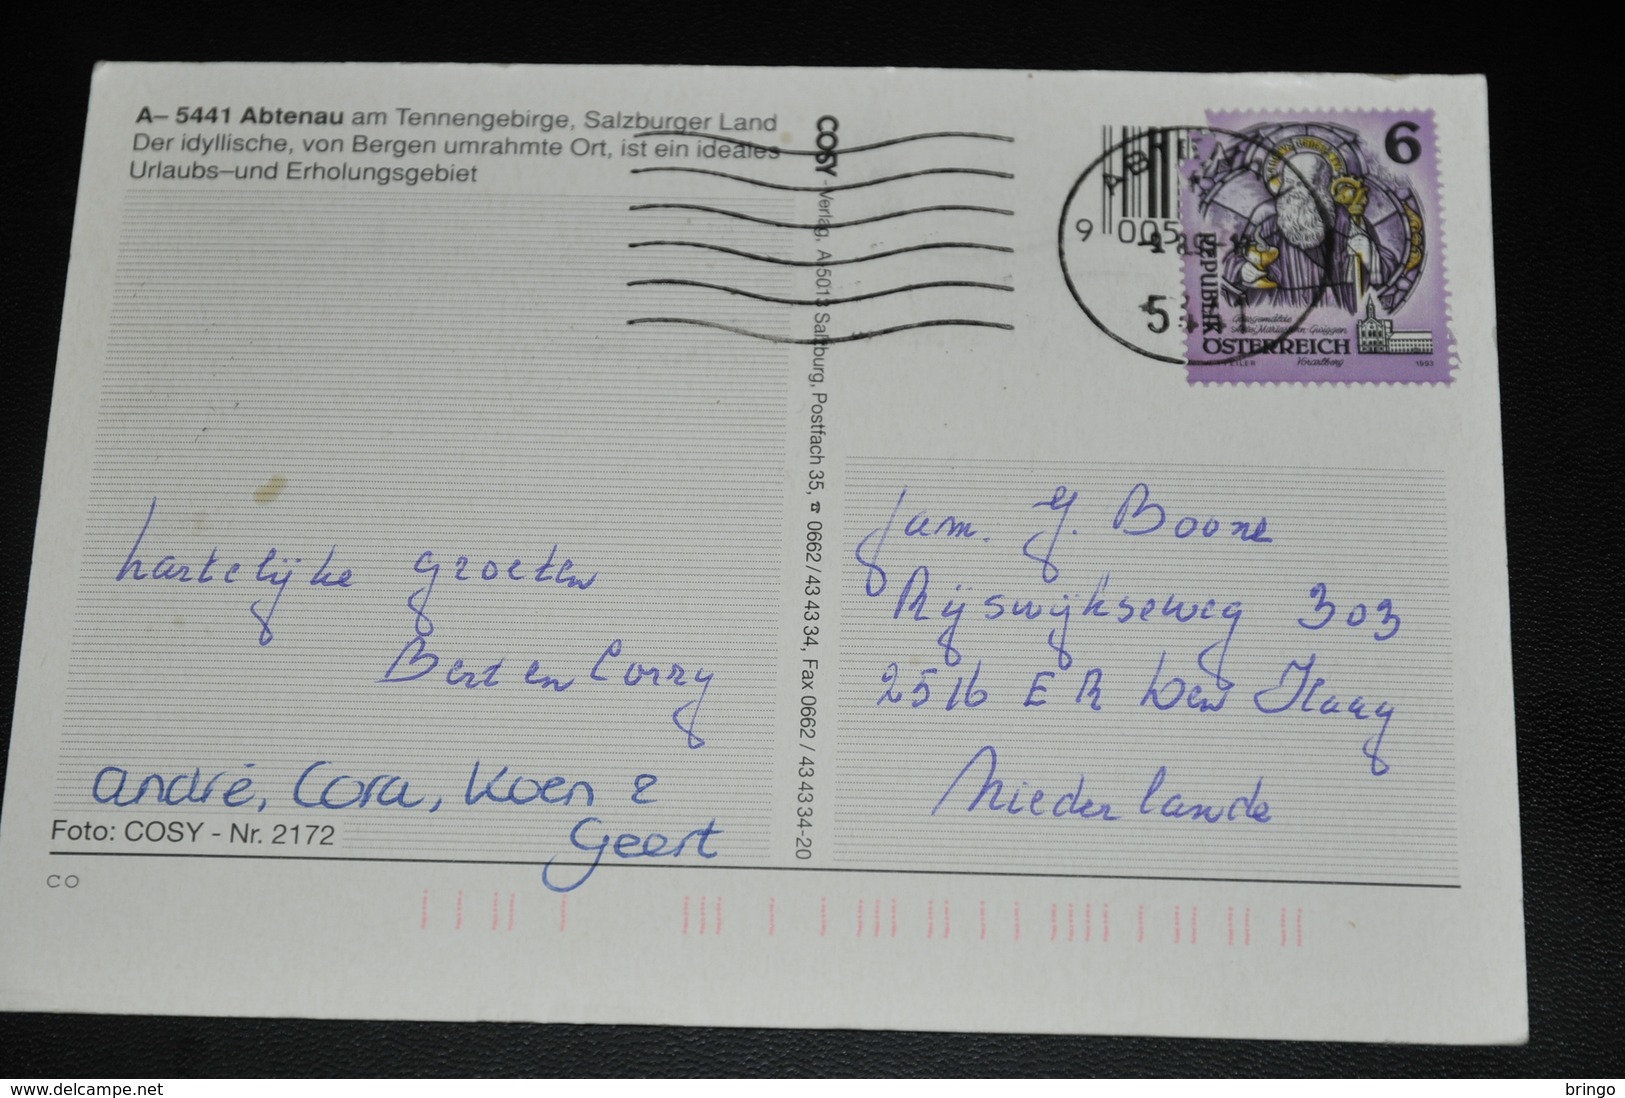 A– 5441 Abtenau am Tennengebirge, Salzburger Land
Der idyllische, von Bergen umrahmte Ort, ist ein ideales
Urlaubs–und Erholungsgebiet
hartelijke groeten
Bert en Corry
André, Cora, Koen &
Geert
Foto: COSY - Nr. 2172
CO
COSY-Verlag, A-5013 Salzburg, Postfach 35, ☎ 0662/43 43 34, Fax 0662/43 43 34-20
9 005
6
REPUBLIK
ÖSTERREICH
Vorarlberg
1993
fam. G. Boone
Rijswijkseweg 303
2516 ER Den Haag
Niederlande
www.delcampe.net
bringo